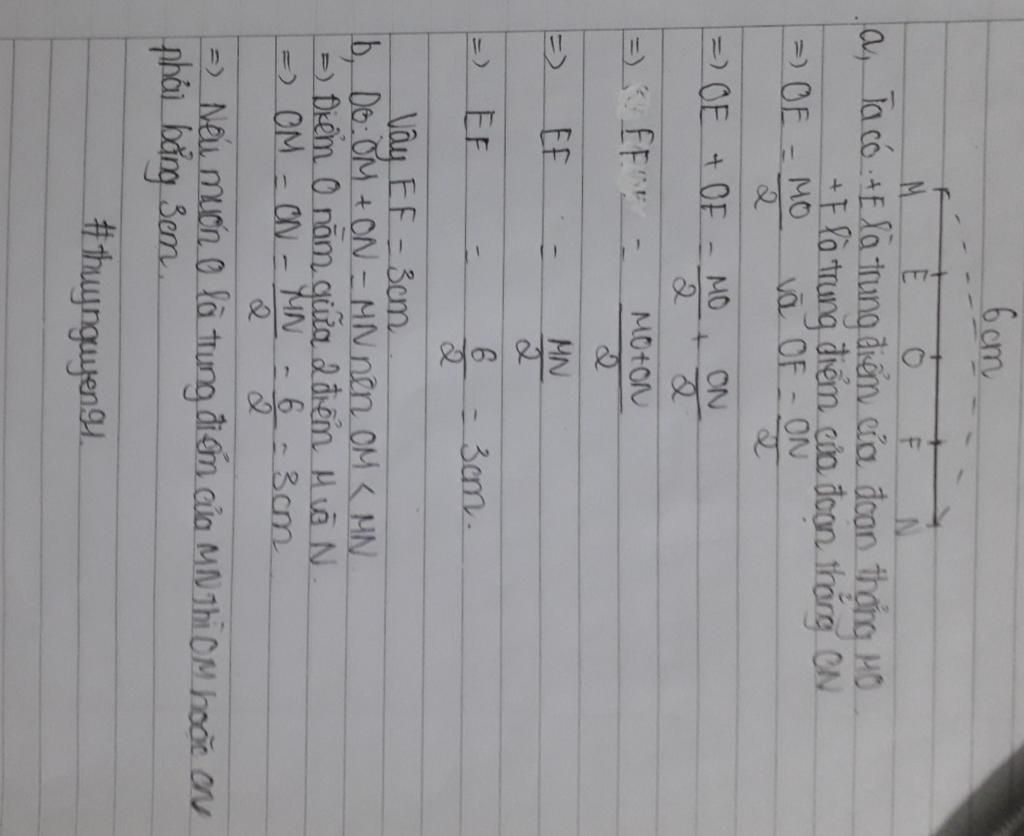 6cm
M E O F N
a, Ta có: +E là trung điểm của đoạn thẳng MO
+F là trung điểm của đoạn thẳng ON
=> OE = MO/2 và OF = ON/2
=> OE + OF = MO/2 + ON/2
=> EF = MO+ON/2
=> EF = MN/2
=> EF = 6/2 = 3cm.
Vậy EF = 3cm
b, Do: OM + ON = MN nên OM < MN
=> Điểm O nằm giữa 2 điểm M và N.
=> OM = ON = MN/2 = 6/2 = 3cm
=> Nếu muốn O là trung điểm của MN thì OM hoặc ON
phải bằng 3cm.
#thuynguyen91.